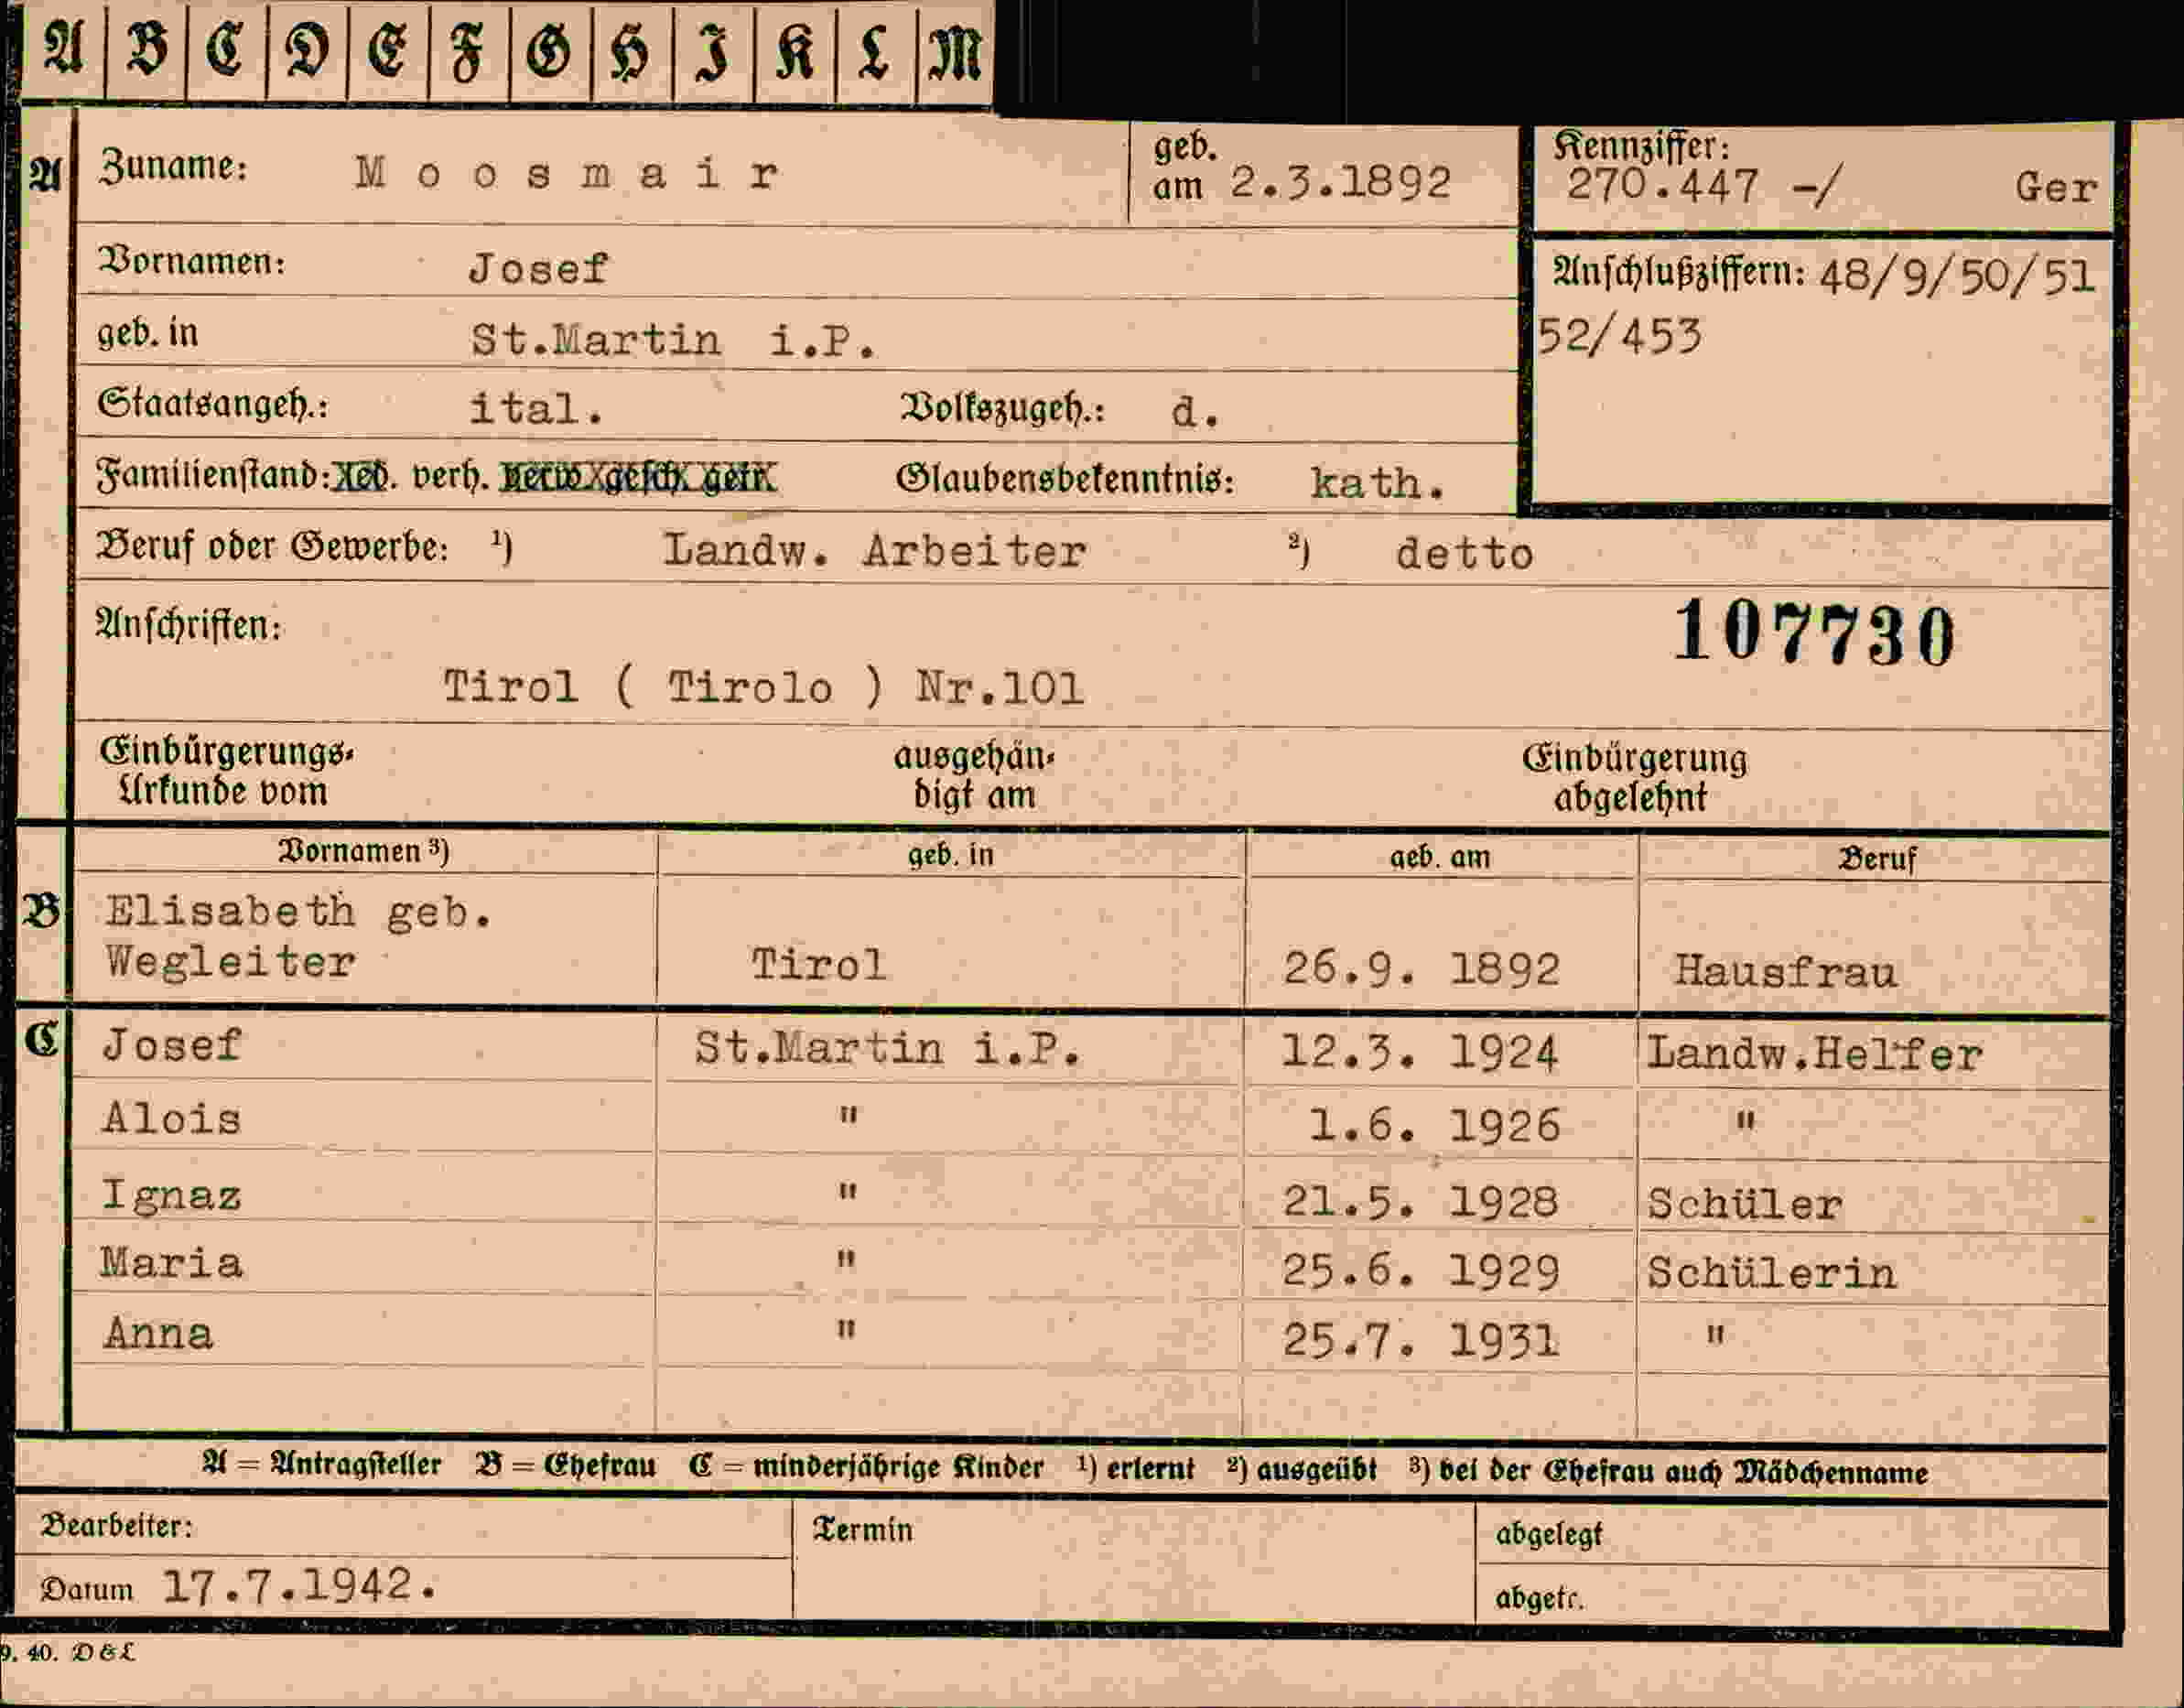 A B C D E F G H I K L M
A Zuname: Moosmair geb. am 2.3.1892 Kennziffer: 270.447 -/ Ger
Vornamen: Josef Anschlußziffern: 48/9/50/51
geb. in St.Martin i.P. 52/453
Staatsangeh.: ital. Volkszugeh.: d.
Familienstand: led. verh. verw. gesch. getr. Glaubensbekenntnis: kath.
Beruf oder Gewerbe: ¹) Landw. Arbeiter ²) detto
Anschriften: 107730
Tirol ( Tirolo ) Nr.101
Einbürgerungs- ausgehän- Einbürgerung
Urkunde vom digt am abgelehnt
Vornamen ³) geb. in geb. am Beruf
B Elisabeth geb.
Wegleiter Tirol 26.9. 1892 Hausfrau
C Josef St.Martin i.P. 12.3. 1924 Landw.Helfer
Alois " 1.6. 1926 "
Ignaz " 21.5. 1928 Schüler
Maria " 25.6. 1929 Schülerin
Anna " 25.7. 1931 "
A = Antragsteller B = Ehefrau C = minderjährige Kinder ¹) erlernt ²) ausgeübt ³) bei der Ehefrau auch Mädchenname
Bearbeiter: Termin abgelegt
Datum 17.7.1942. abgetr.
9. 40. D & L